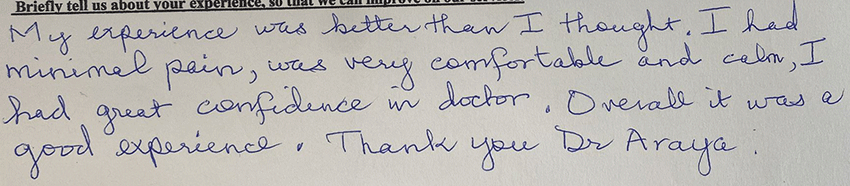 Briefly tell us about your experience, so that we can improve on our
My experience was better than I thought. I had
minimal pain, was very comfortable and calm, I
had great confidence in doctor. Overall it was a
good experience. Thank you Dr Araya.